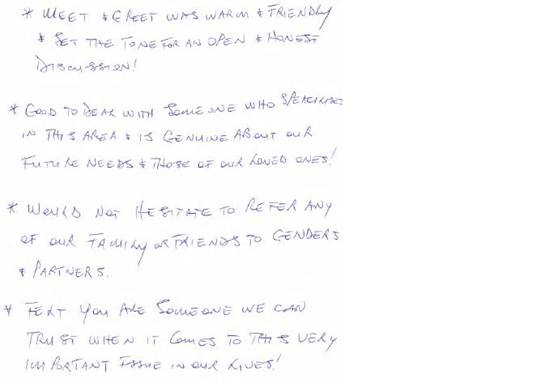 * MEET & GREET WAS WARM & FRIENDLY
& SET THE TONE FOR AN OPEN & HONEST
DISCUSSION!
* GOOD TO DEAL WITH SOMEONE WHO SPECIALISES
IN THIS AREA & IS GENUINE ABOUT OUR
FUTURE NEEDS & THOSE OF OUR LOVED ONES!
* WOULD NOT HESITATE TO REFER ANY
OF OUR FAMILY OR FRIENDS TO GENDERS
& PARTNERS.
* FELT YOU ARE SOMEONE WE CAN
TRUST WHEN IT COMES TO THIS VERY
IMPORTANT ISSUE IN OUR LIVES!